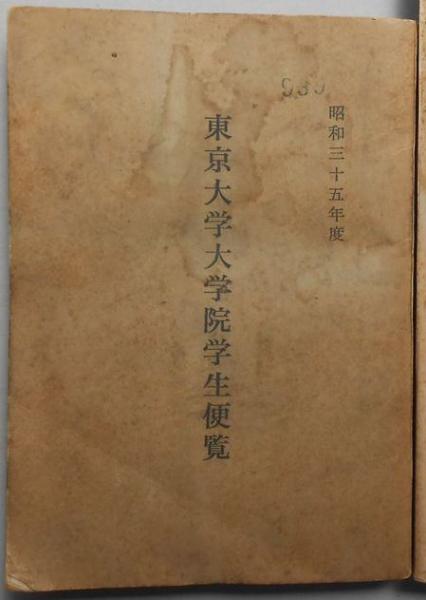 昭和三十五年度
東京大学大学院学生便覧